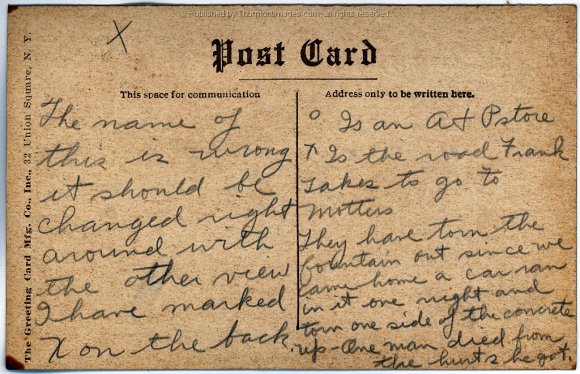 Published by Thurmontimages.com, all rights reserved
X
Post Card
This space for communication
Address only to be written here.
The Greeting Card Mfg. Co., Inc., 32 Union Square, N. Y.
The name of
this is wrong
it should be
changed right
around with
the other view
I have marked
X on the back.
o Is an A+ Pstore
X Is the road Frank
takes to go to
Motters
They have torn the
fountain out since we
came home a car ran
in it one night and
torn one side of the concrete
up - One man died from
the hurts he got.